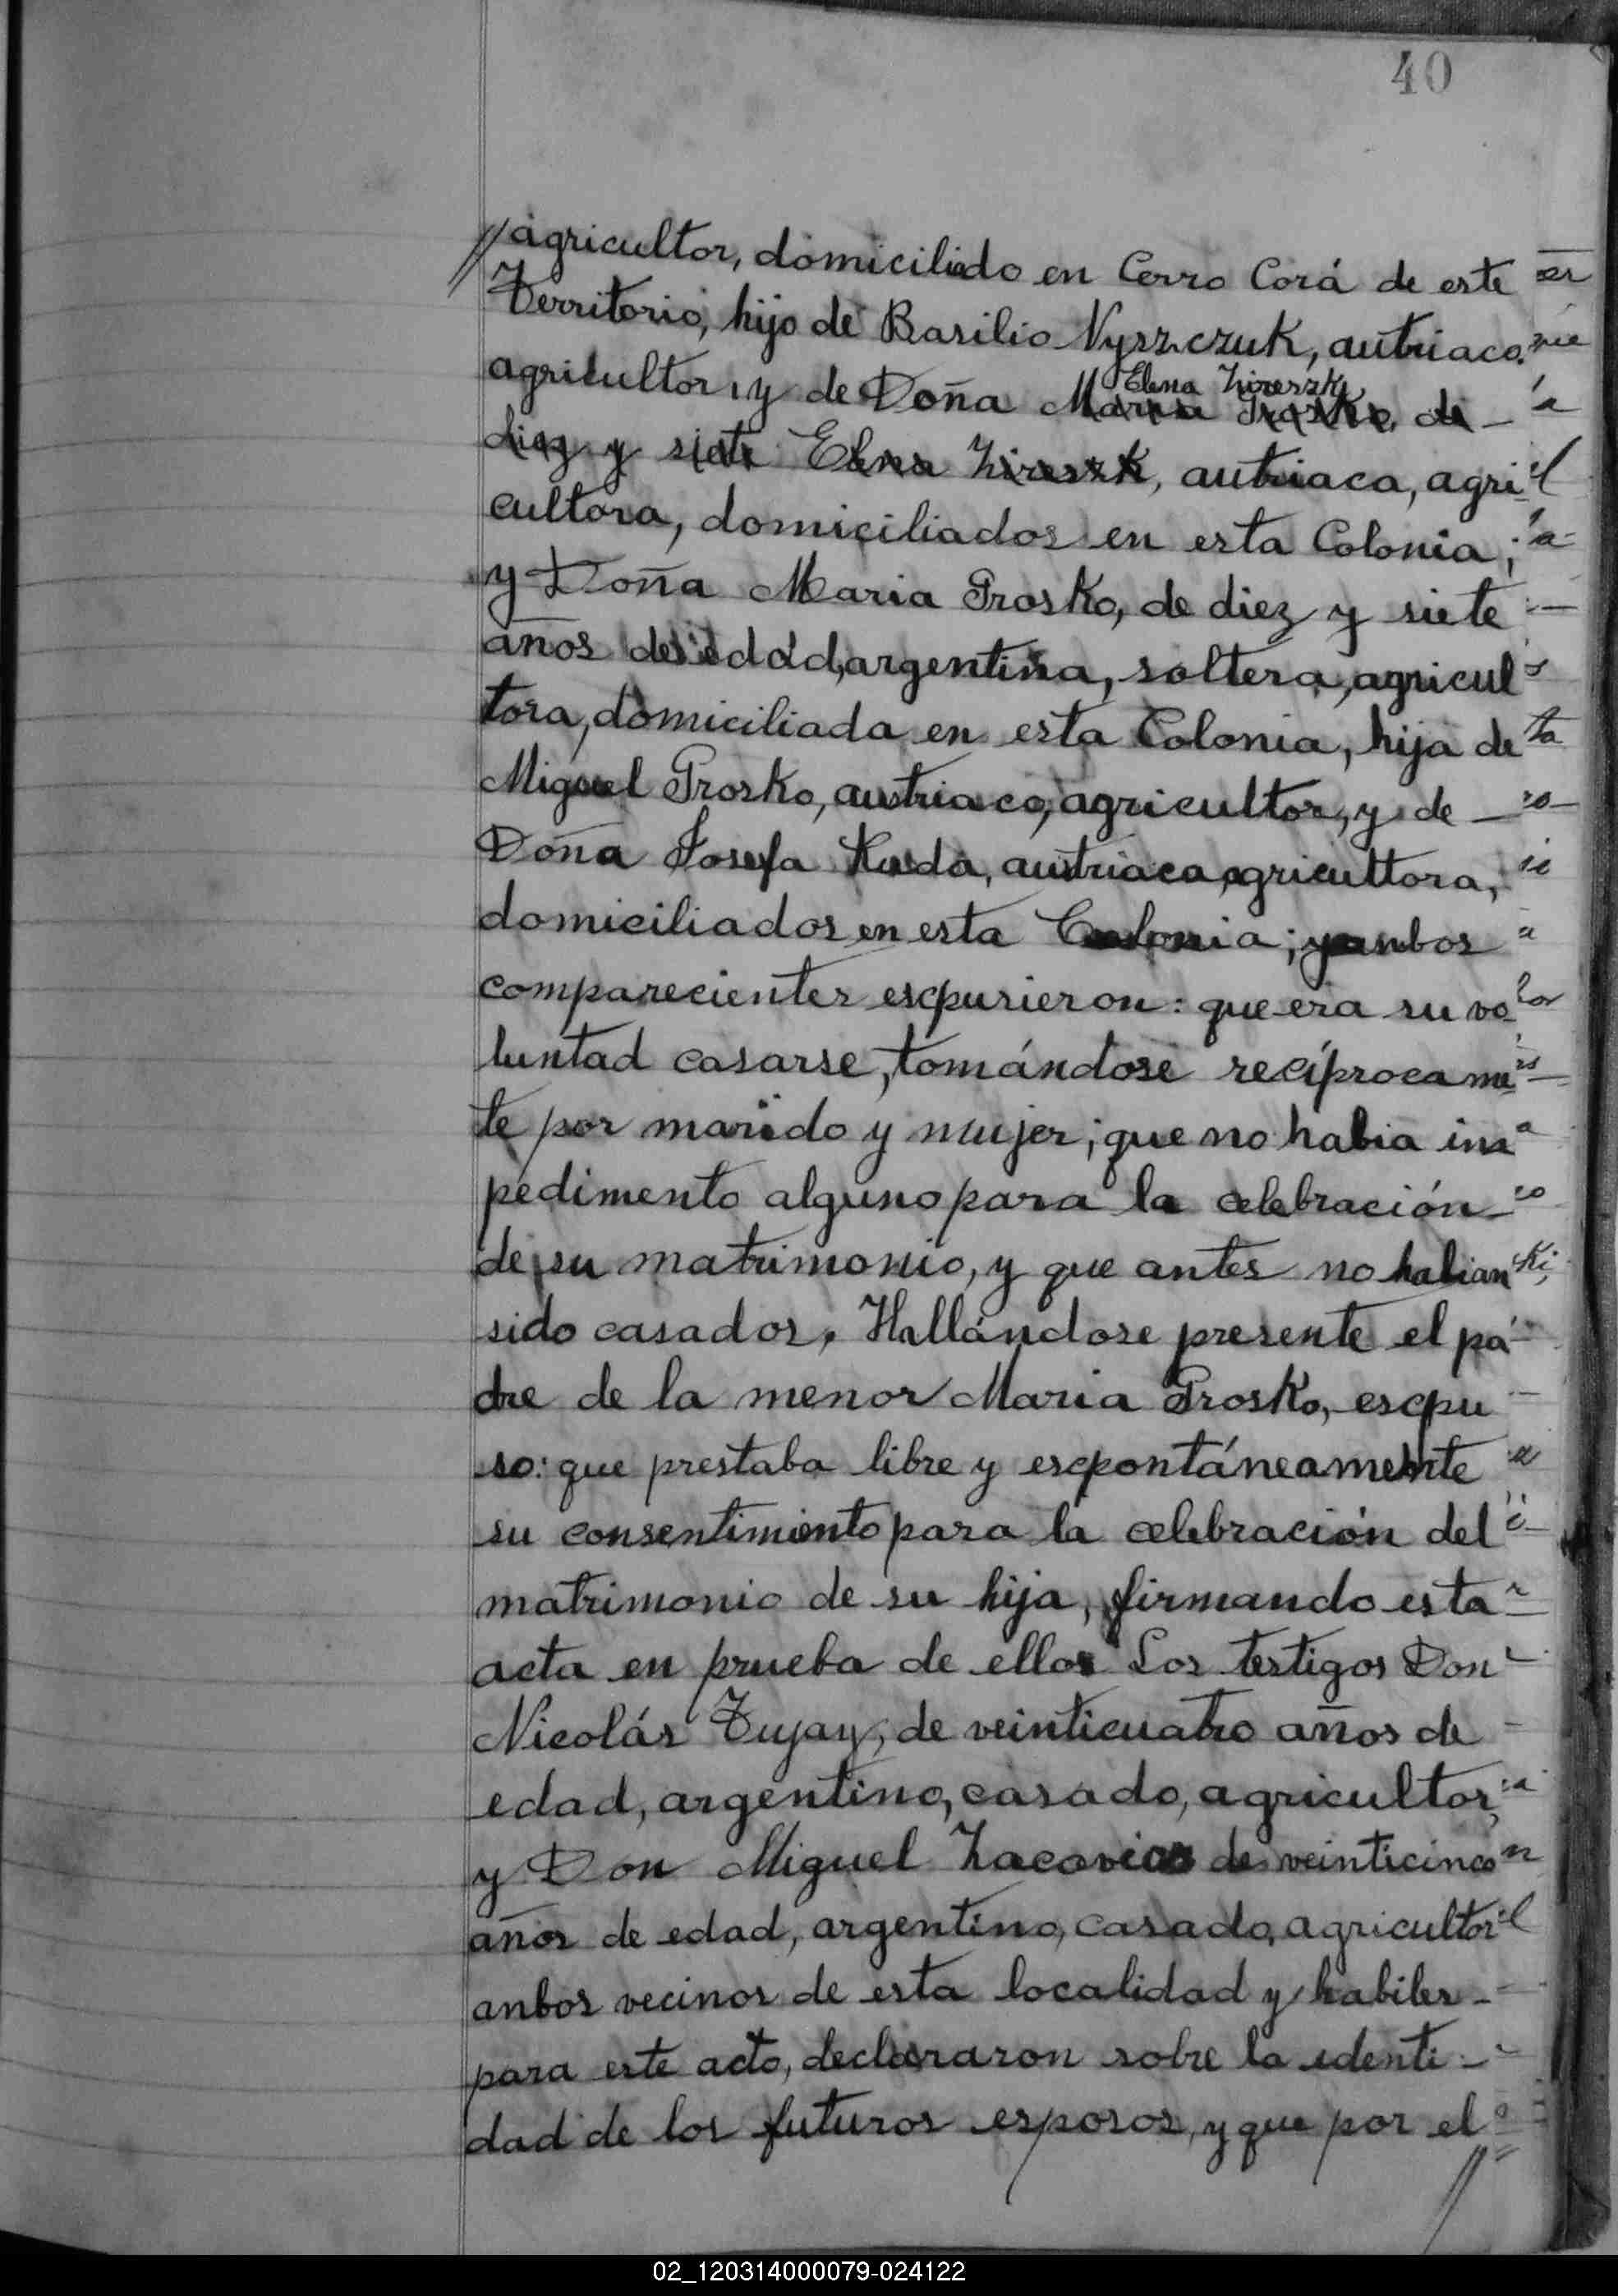 40
//agricultor, domiciliado en Cerro Corá de este
Territorio, hijo de Basilio Nyszczuk, autriaco,
Elena Zireszk
agricultor, y de Doña Maria Prosko, de
diez y siete Elena Zireszk, autriaca, agri
cultora, domiciliados en esta Colonia;
y Doña Maria Prosko, de diez y siete
años de edad, argentina, soltera, agricul
tora, domiciliada en esta Colonia, hija de
Miguel Prosko, austriaco, agricultor, y de —
Doña Josefa Kuda, austriaca, agricultora,
domiciliados en esta Colonia; y anbos
comparecientes escpusieron: que era su vo
luntad casarse, tomándose recíprocame
te por marido y mujer; que no habia im
pedimento alguno para la celebración
de su matrimonio, y que antes no habian
sido casados. Hallándose presente el pa
dre de la menor Maria Prosko, escpu
so: que prestaba libre y escpontáneamente
su consentimiento para la celebración del
matrimonio de su hija, firmando esta
acta en prueba de ello. Los testigos Don
Nicolás Tujay, de veinticuatro años de
edad, argentino, casado, agricultor,
y Don Miguel de veinticinco
años de edad, argentino, casado, agricultor
anbos vecinos de esta localidad y habiles -
para este acto, declararon sobre la identi -
dad de los futuros esposos, y que por el
//
02_120314000079-024122